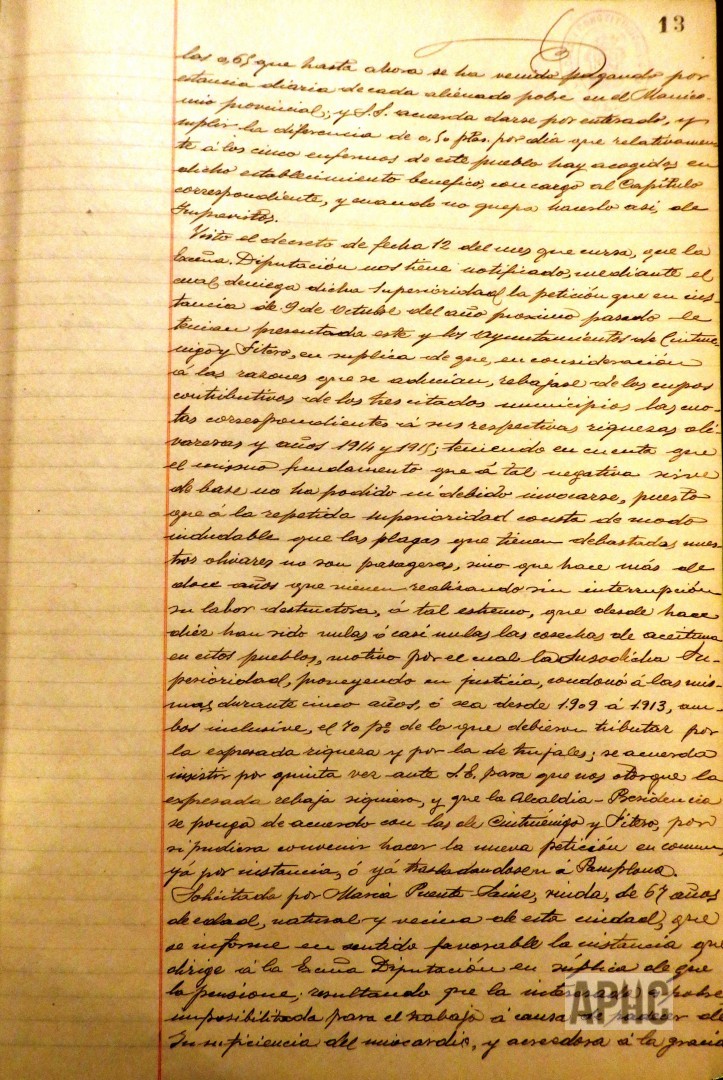 13
las 0,65 que hasta ahora se ha venido pagando por
estancia diaria de cada alienado pobre en el Manico-
mio provincial; y S.S. acuerda darse por enterado, y
suplir la diferencia de 0,50 ptas. por día que relativamen-
te á los cinco enfermos de este pueblo hay acogidos en
dicho establecimiento benefico, con cargo al Capitulo
correspondiente, y cuando no quepa hacerlo así, de
Imprevistos.
Visto el decreto de fecha 12 del mes que cursa, que la
Excma. Diputación nos tiene notificado, mediante el
cual deniega dicha Superioridad la petición que en ins-
tancia de 9 de Octubre del año proximo pasado le
tenian presentada este y los Ayuntamientos de Cintrue-
nigo y Fitero, en suplica de que, en consideración
á las razones que se aducian, rebajase de los cupos
contributivos de los tres citados municipios las cuo-
tas correspondientes á sus respectivas riquezas oli-
vareras y años 1914 y 1915; teniendo en cuenta que
el mismo fundamento que á tal negativa sirve
de base no ha podido ni debido invocarse, puesto
que á la repetida superioridad consta de modo
indudable que las plagas que tienen debastados nues-
tros olivares no son pasageras, sino que hace más de
doce años que vienen realizando sin interrupción
su labor destructora, á tal estremo, que desde hace
diéz han sido nulas ó casi nulas las cosechas de aceituna
en estos pueblos, motivo por el cual la susodicha Su-
perioridad, proveyendo en justicia, condonó á las mis-
mas, durante cinco años, ó sea desde 1909 á 1913, am-
bos inclusive, el 70 p% de lo que debieron tributar por
la expresada riqueza y por la de trujales; se acuerda
insistir por quinta vez ante S.E. para que nos otorgue la
expresada rebaja siquiera, y que la Alcaldia-Presidencia
se ponga de acuerdo con las de Cintruénigo y Fitero, por
si pudiera convenir hacer la nueva petición en comun,
yá por instancia, ó yá trasladandosen á Pamplona.
Solicitado por Maria Puente Sainz, viuda, de 67 años
de edad, natural y vecina de esta ciudad, que
se informe en sentido favorable la instancia que
dirige á la Excma Diputación en súplica de que
la pensione; resultando que la interesada es pobre
imposibilitada para el trabajo á causa de padecer de
Insuficiencia del miocardio, y acreedora á la gracia
APHC